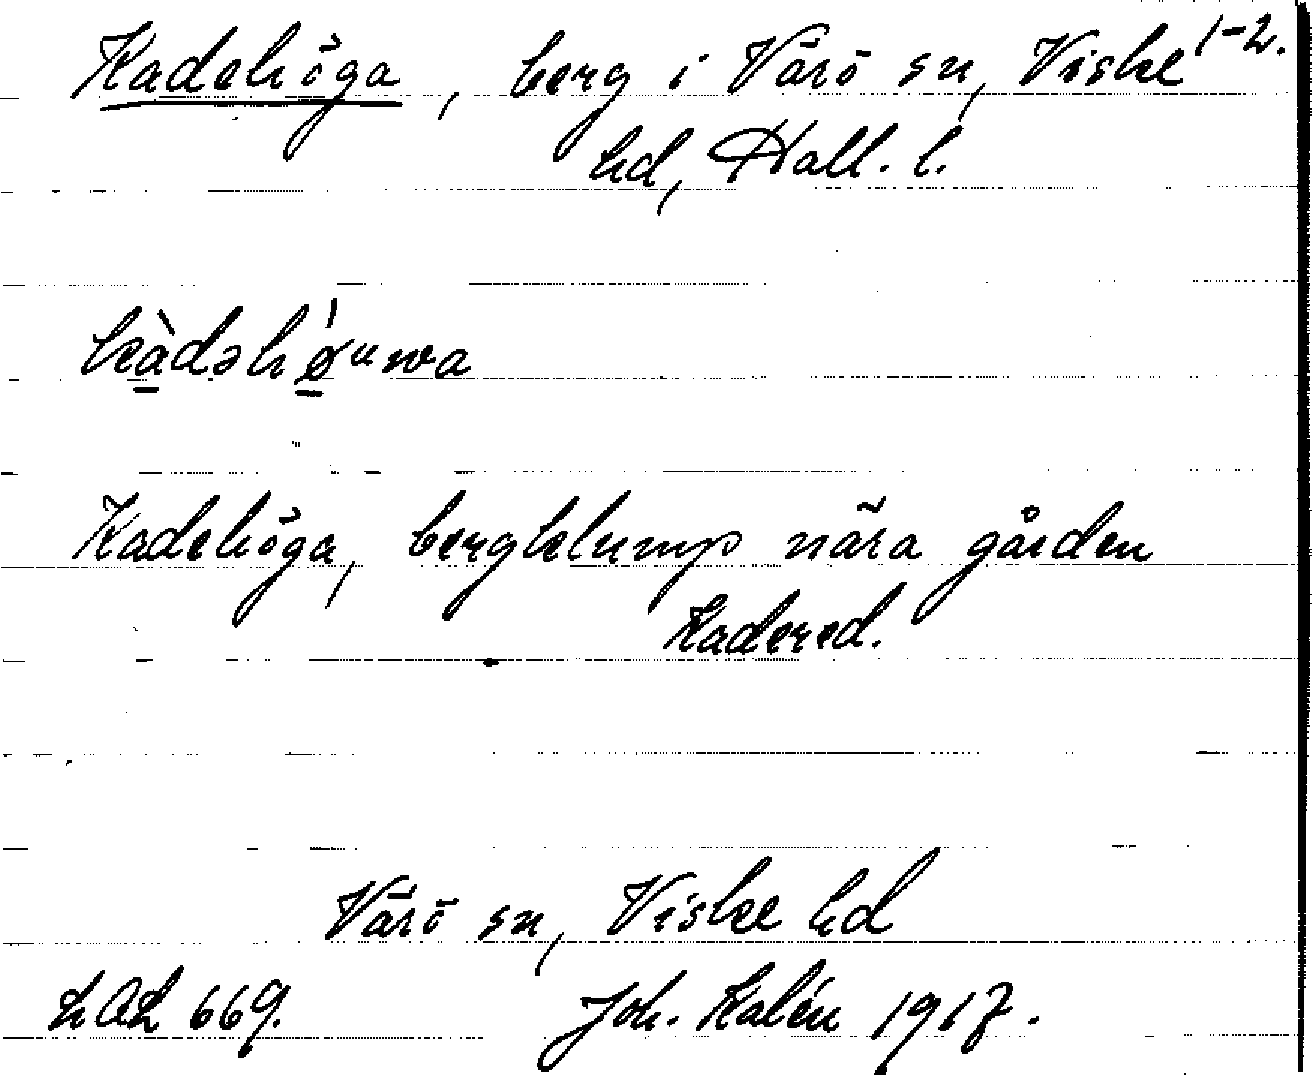 Kadehöga, berg i Värö sn, Viske 1-2.
hd, Hall. l.
kàdəhǿuwa
Kadehöga, bergklump nära gården
Kadered.
Värö sn, Viske hd
LAL 669. Joh. Kalén 1917.